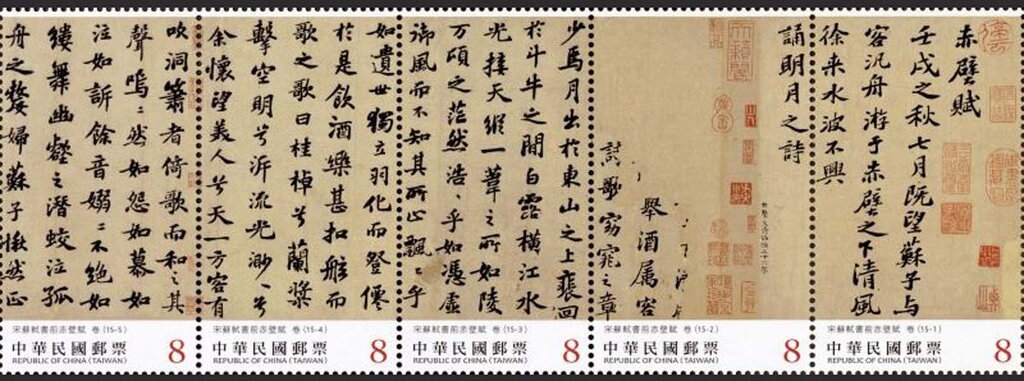 赤壁賦
壬戌之秋七月既望蘇子与
客汎舟游于赤壁之下清風
徐来水波不興
宋蘇軾書前赤壁賦 卷 (15-1)
中華民國郵票 8
REPUBLIC OF CHINA (TAIWAN)
誦明月之詩
舉酒属客
歌窈窕之章
宋蘇軾書前赤壁賦 卷 (15-2)
中華民國郵票 8
REPUBLIC OF CHINA (TAIWAN)
少焉月出於東山之上裵回
於斗牛之間白露橫江水
光接天縱一葦之所如陵
万頃之茫然浩〻乎如憑虛
御風而不知其所止飄〻乎
宋蘇軾書前赤壁賦 卷 (15-3)
中華民國郵票 8
REPUBLIC OF CHINA (TAIWAN)
如遺世獨立羽化而登僊
於是飲酒樂甚扣舷而
歌之歌曰桂棹兮蘭槳
擊空明兮泝流光渺〻兮
余懷望美人兮天一方客有
宋蘇軾書前赤壁賦 卷 (15-4)
中華民國郵票 8
REPUBLIC OF CHINA (TAIWAN)
吹洞簫者倚歌而和之其
聲嗚〻然如怨如慕如
泣如訴餘音嫋〻不絕如
縷舞幽壑之潛蛟泣孤
舟之嫠婦蘇子愀然正
宋蘇軾書前赤壁賦 卷 (15-5)
中華民國郵票 8
REPUBLIC OF CHINA (TAIWAN)